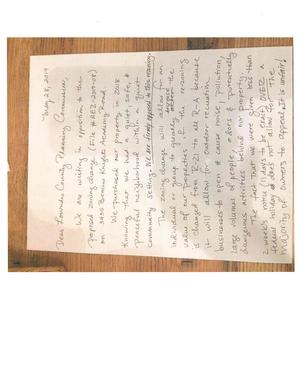 May 28, 2019
Dear Lowndes County Planning Commission,
We are writing in opposition to the
proposed zoning change (File # REZ-2019-08)
on 3455 Knights Academy Road.
We purchased our property in 2018
Knowing that we had a quiet, safe, &
peaceful neighborhood with a quiet
community setting. We are firmly opposed to this rezoning.
The zoning change will allow for an
individual or group to greatly affect the
value of our properties if the rezoning
is changed from R-21 to all R-A because
it will allow for broader
businesses to open & cause noise, pollution,
large volumes of people, odors & potentially
dangerous activities behind our property.
The fact that we were given less than
2 weeks notice (11 days to be exact) OVER a
federal holiday does not allow for the
majority of owners to appeal. It is unfair!